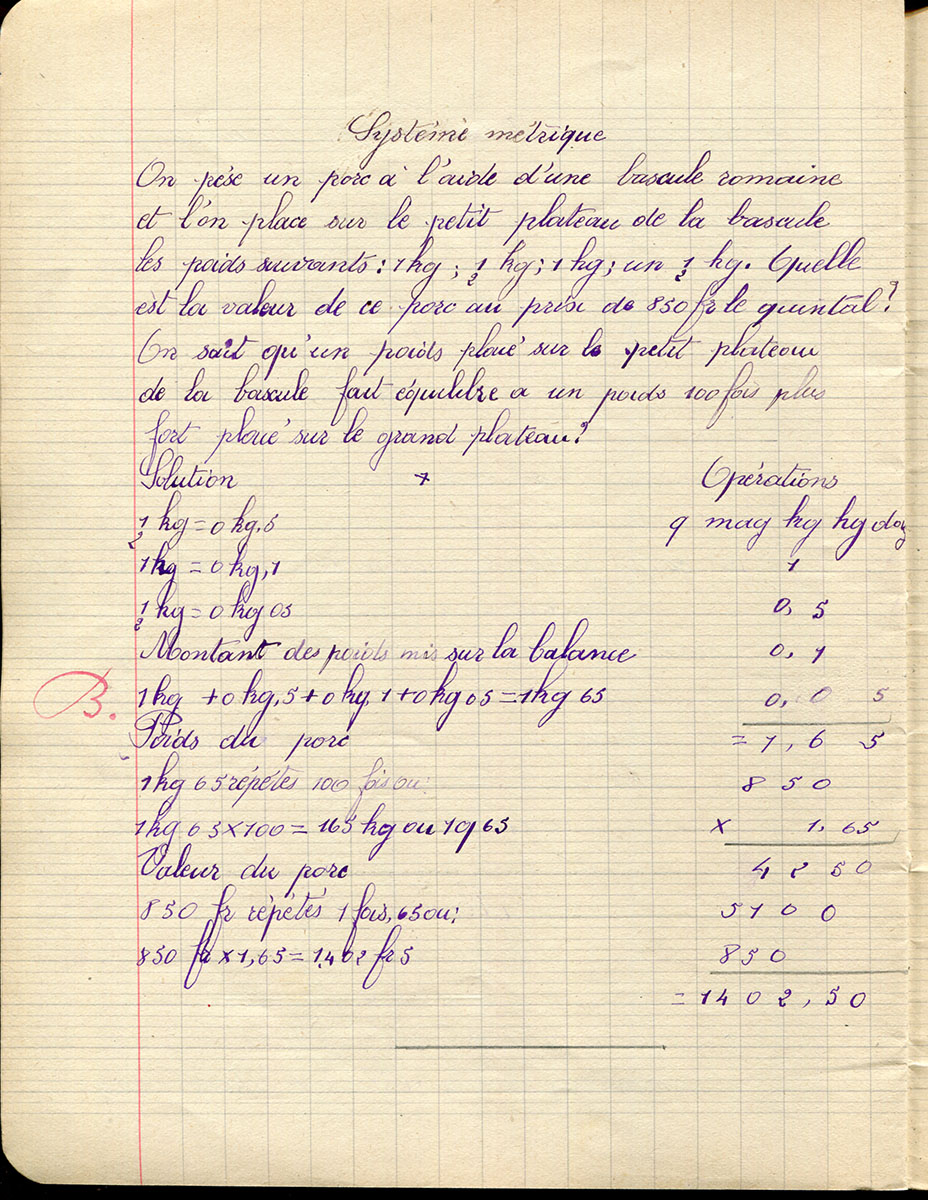 Système métrique
On pése un porc à l'aide d'une bascule romaine
et l'on place sur le petit plateau de la bascule
les poids suivants : 1 kg ; 1/2 kg ; 1 hg ; un 1/2 hg. Quelle
est la valeur de ce porc au prix de 850 fr le quintal ?
On sait qu'un poids placé sur le petit plateau
de la bascule fait équilibre a un poids 100 fois plus
fort placé sur le grand plateau ?
Solution + Opérations
1/2 kg = 0 kg,5 q mag kg hg dag
1 hg = 0 kg,1 1
1/2 hg = 0 kg 05 0, 5
Montant des poids mis sur la balance 0, 1
B. 1 kg + 0 kg,5 + 0 kg,1 + 0 kg 05 = 1 kg 65 0, 0 5
Poids du porc = 1, 6 5
1 kg 65 répétés 100 fois ou : 850
1 kg 65 x 100 = 165 kg ou 1 q 65 x 1,65
Valeur du porc 4250
850 fr répétés 1 fois,65 ou : 5100
850 fr x 1,65 = 1402 fr 5 850
= 1402,50